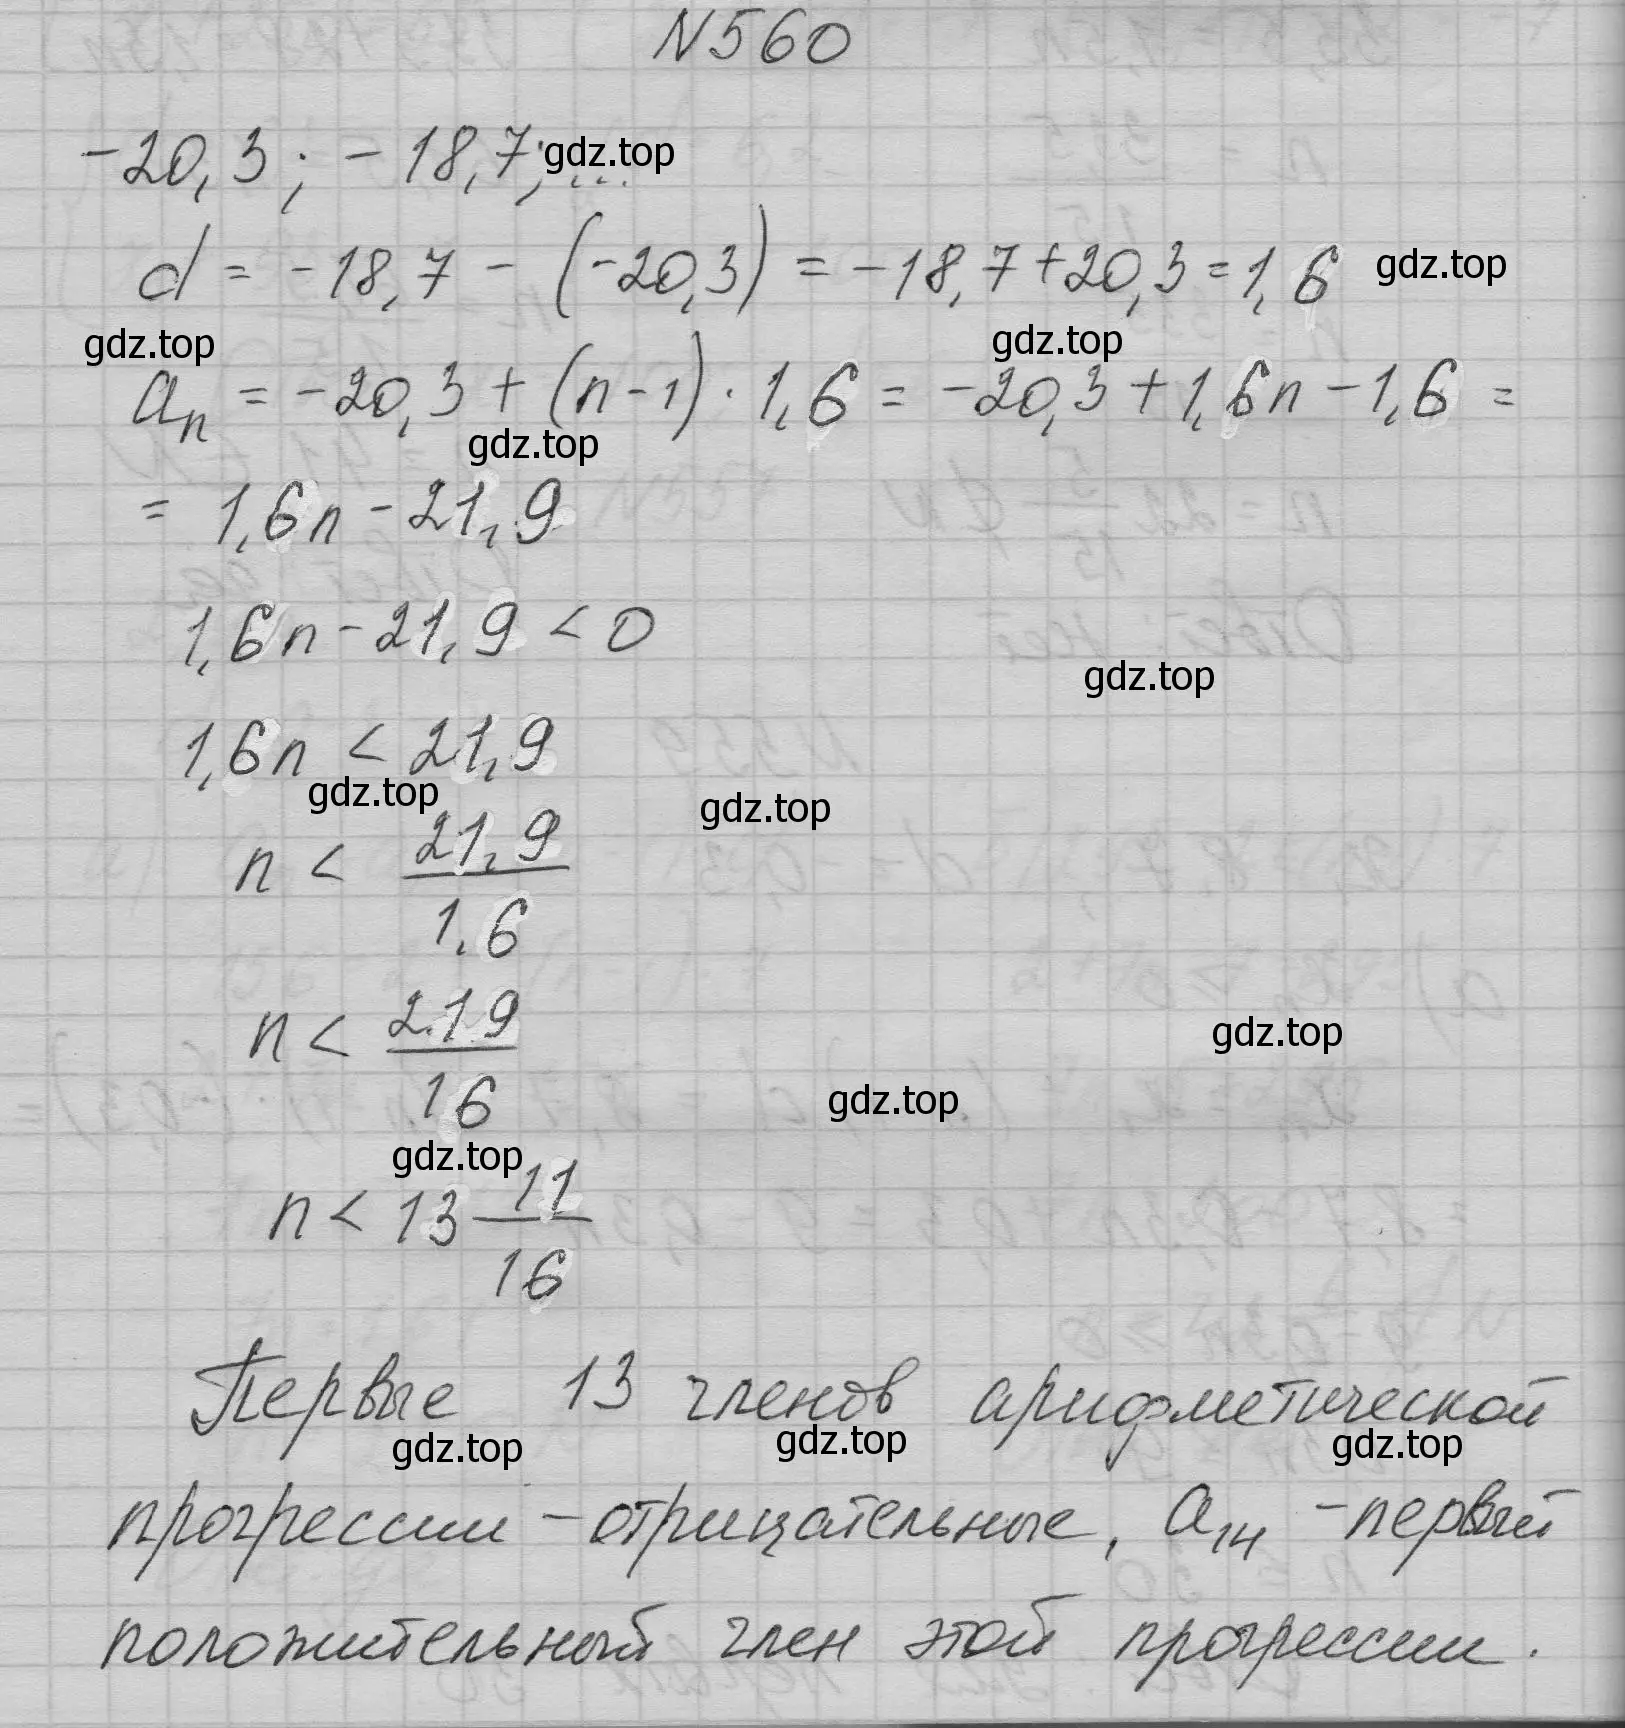 N560
-20,3; -18,7; ...
gdz.top
d = -18,7 - (-20,3) = -18,7 + 20,3 = 1,6
gdz.top
gdz.top
gdz.top
aₙ = -20,3 + (n-1) · 1,6 = -20,3 + 1,6n - 1,6 =
gdz.top
= 1,6n - 21,9
1,6n - 21,9 < 0
gdz.top
1,6n < 21,9
gdz.top
gdz.top
n < 21,9/1,6
n < 219/16
gdz.top
gdz.top
gdz.top
n < 13 11/16
Первые 13 членов арифметической
gdz.top
gdz.top
gdz.top
прогрессии - отрицательные, a₁₄ - первый
положительный член этой прогрессии.